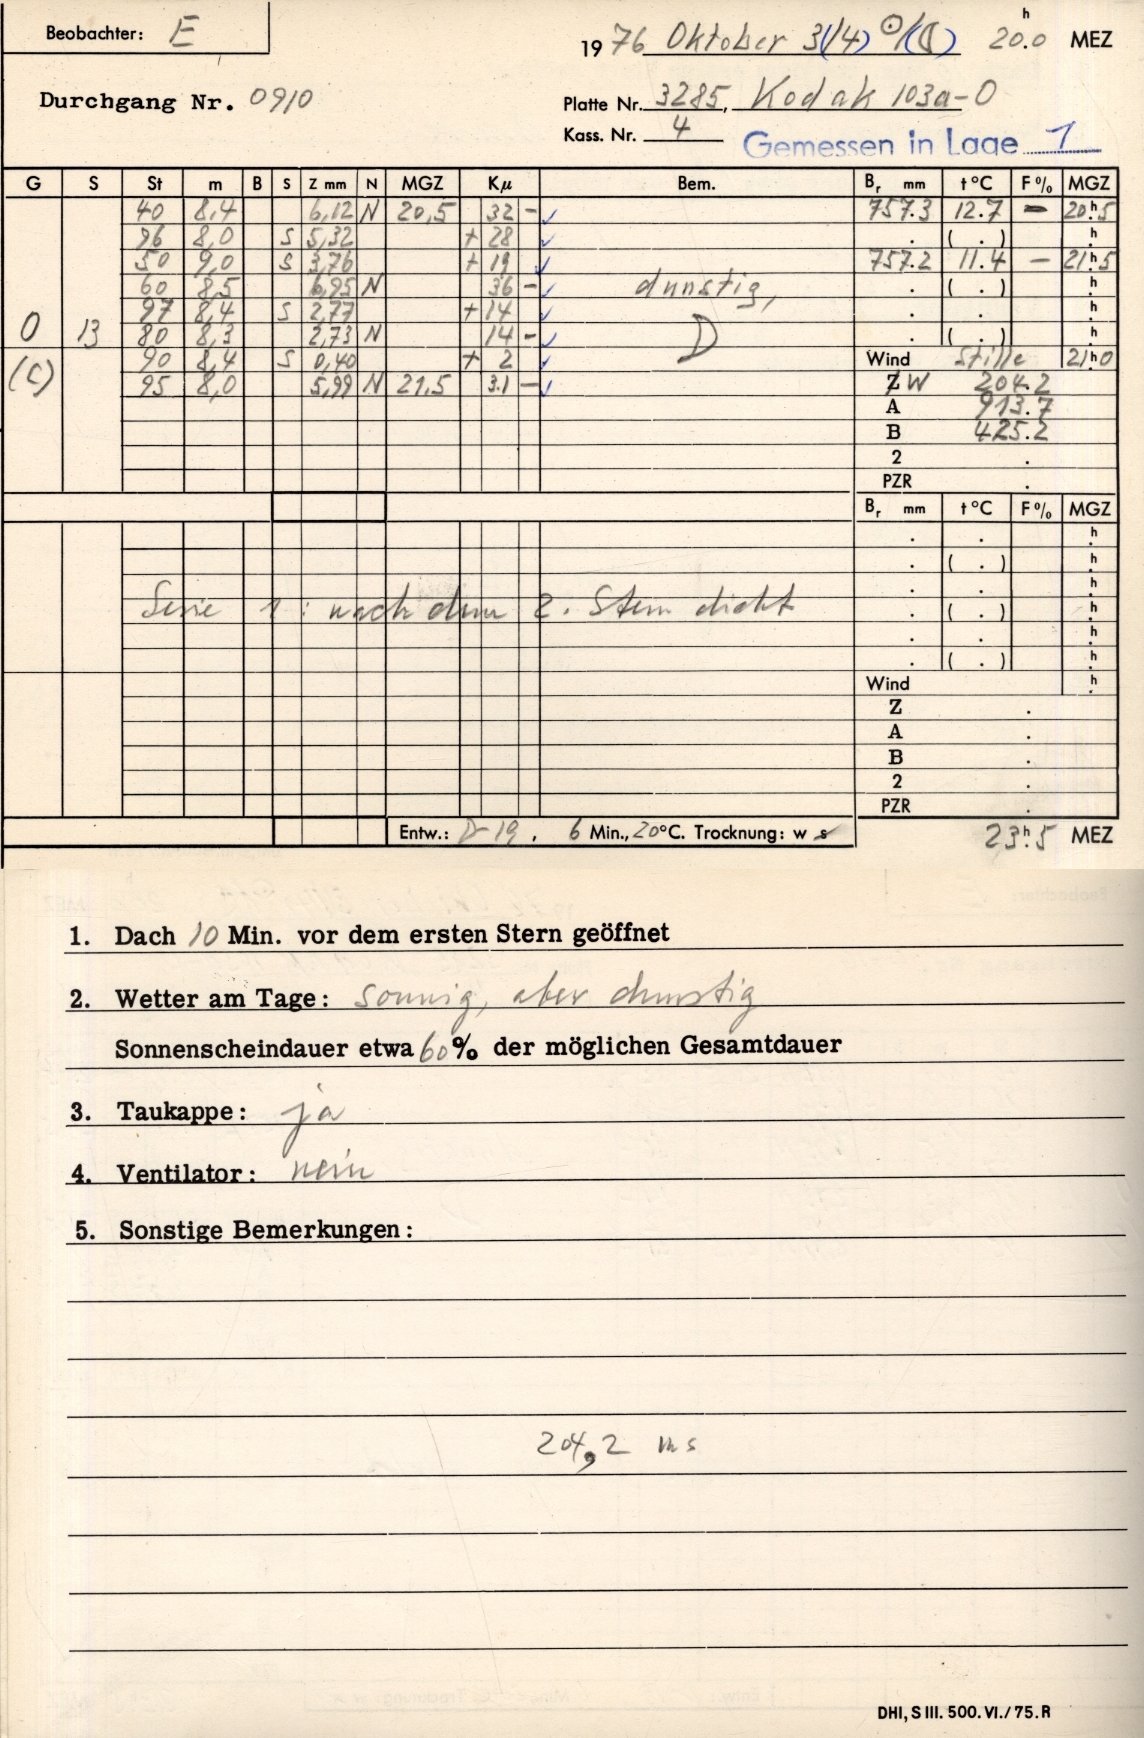 Beobachter: E
1976 Oktober 3(/4) ☉/(☾) 20.0 h MEZ
Durchgang Nr. 0910
Platte Nr. 3285, Kodak 103a-O
Kass. Nr. 4
Gemessen in Lage 1
G S St m B S Z mm N MGZ Kμ Bem. Br mm t°C F% MGZ
40 8,4 6,12 N 20,5 32 - ✓ 757.3 12.7 - 20h.5
96 8,0 S 5,32 + 28 ✓ . ( . ) h.
50 9,0 S 3,76 + 19 ✓ 757.2 11.4 - 21h.5
60 8,5 6,95 N 36 - ✓ dunstig, . ( . ) h.
97 8,4 S 2,77 + 14 ✓ . . h.
O 13 80 8,3 2,73 N 14 - ✓ D . ( . ) h.
(C) 90 8,4 S 0,40 + 2 ✓ Wind Stille 21h.0
95 8,0 5,99 N 21,5 31 - ✓ Z W 204.2
A 913.7
B 425.2
2 .
PZR .
Br mm t°C F% MGZ
. . h.
. ( . ) h.
. . h.
Serie 1: nach dem 2. Stern dicht . ( . ) h.
. . h.
. ( . ) h.
Wind h.
Z .
A .
B .
2 .
PZR .
Entw.: D 19, 6 Min., 20°C. Trocknung: w s
23h.5 MEZ
1. Dach 10 Min. vor dem ersten Stern geöffnet
2. Wetter am Tage: sonnig, aber dunstig
Sonnenscheindauer etwa 60% der möglichen Gesamtdauer
3. Taukappe: ja
4. Ventilator: nein
5. Sonstige Bemerkungen:
204,2 ms
DHI, S III. 500. VI./75. R